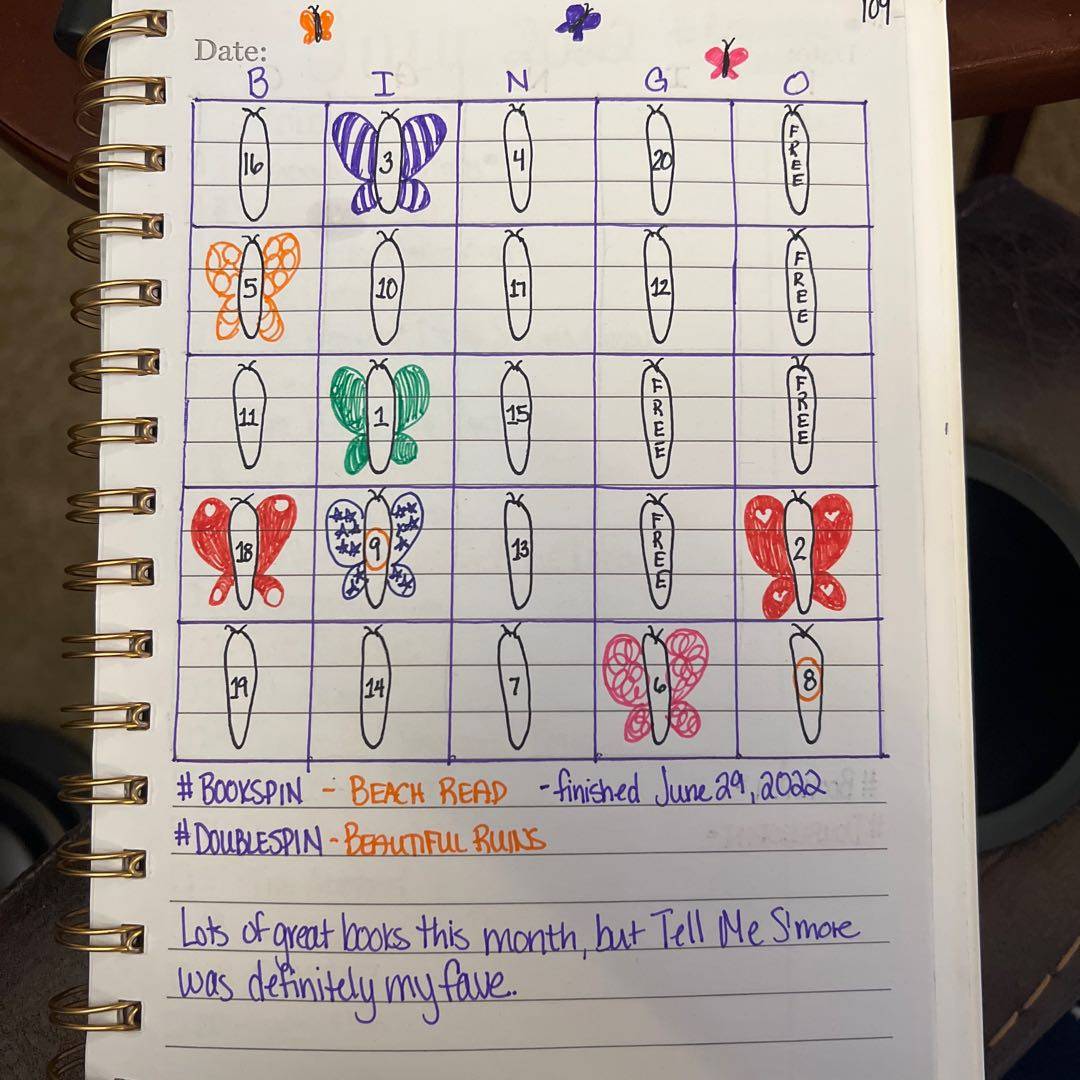 109
Date:
B I N G O
16 3 4 20 FREE
5 10 17 12 FREE
11 1 15 FREE FREE
18 9 13 FREE 2
19 14 7 6 8
#BOOKSPIN - BEACH READ - finished June 29, 2022
#DOUBLESPIN - BEAUTIFUL RUINS
Lots of great books this month, but Tell Me S'more
was definitely my fave.